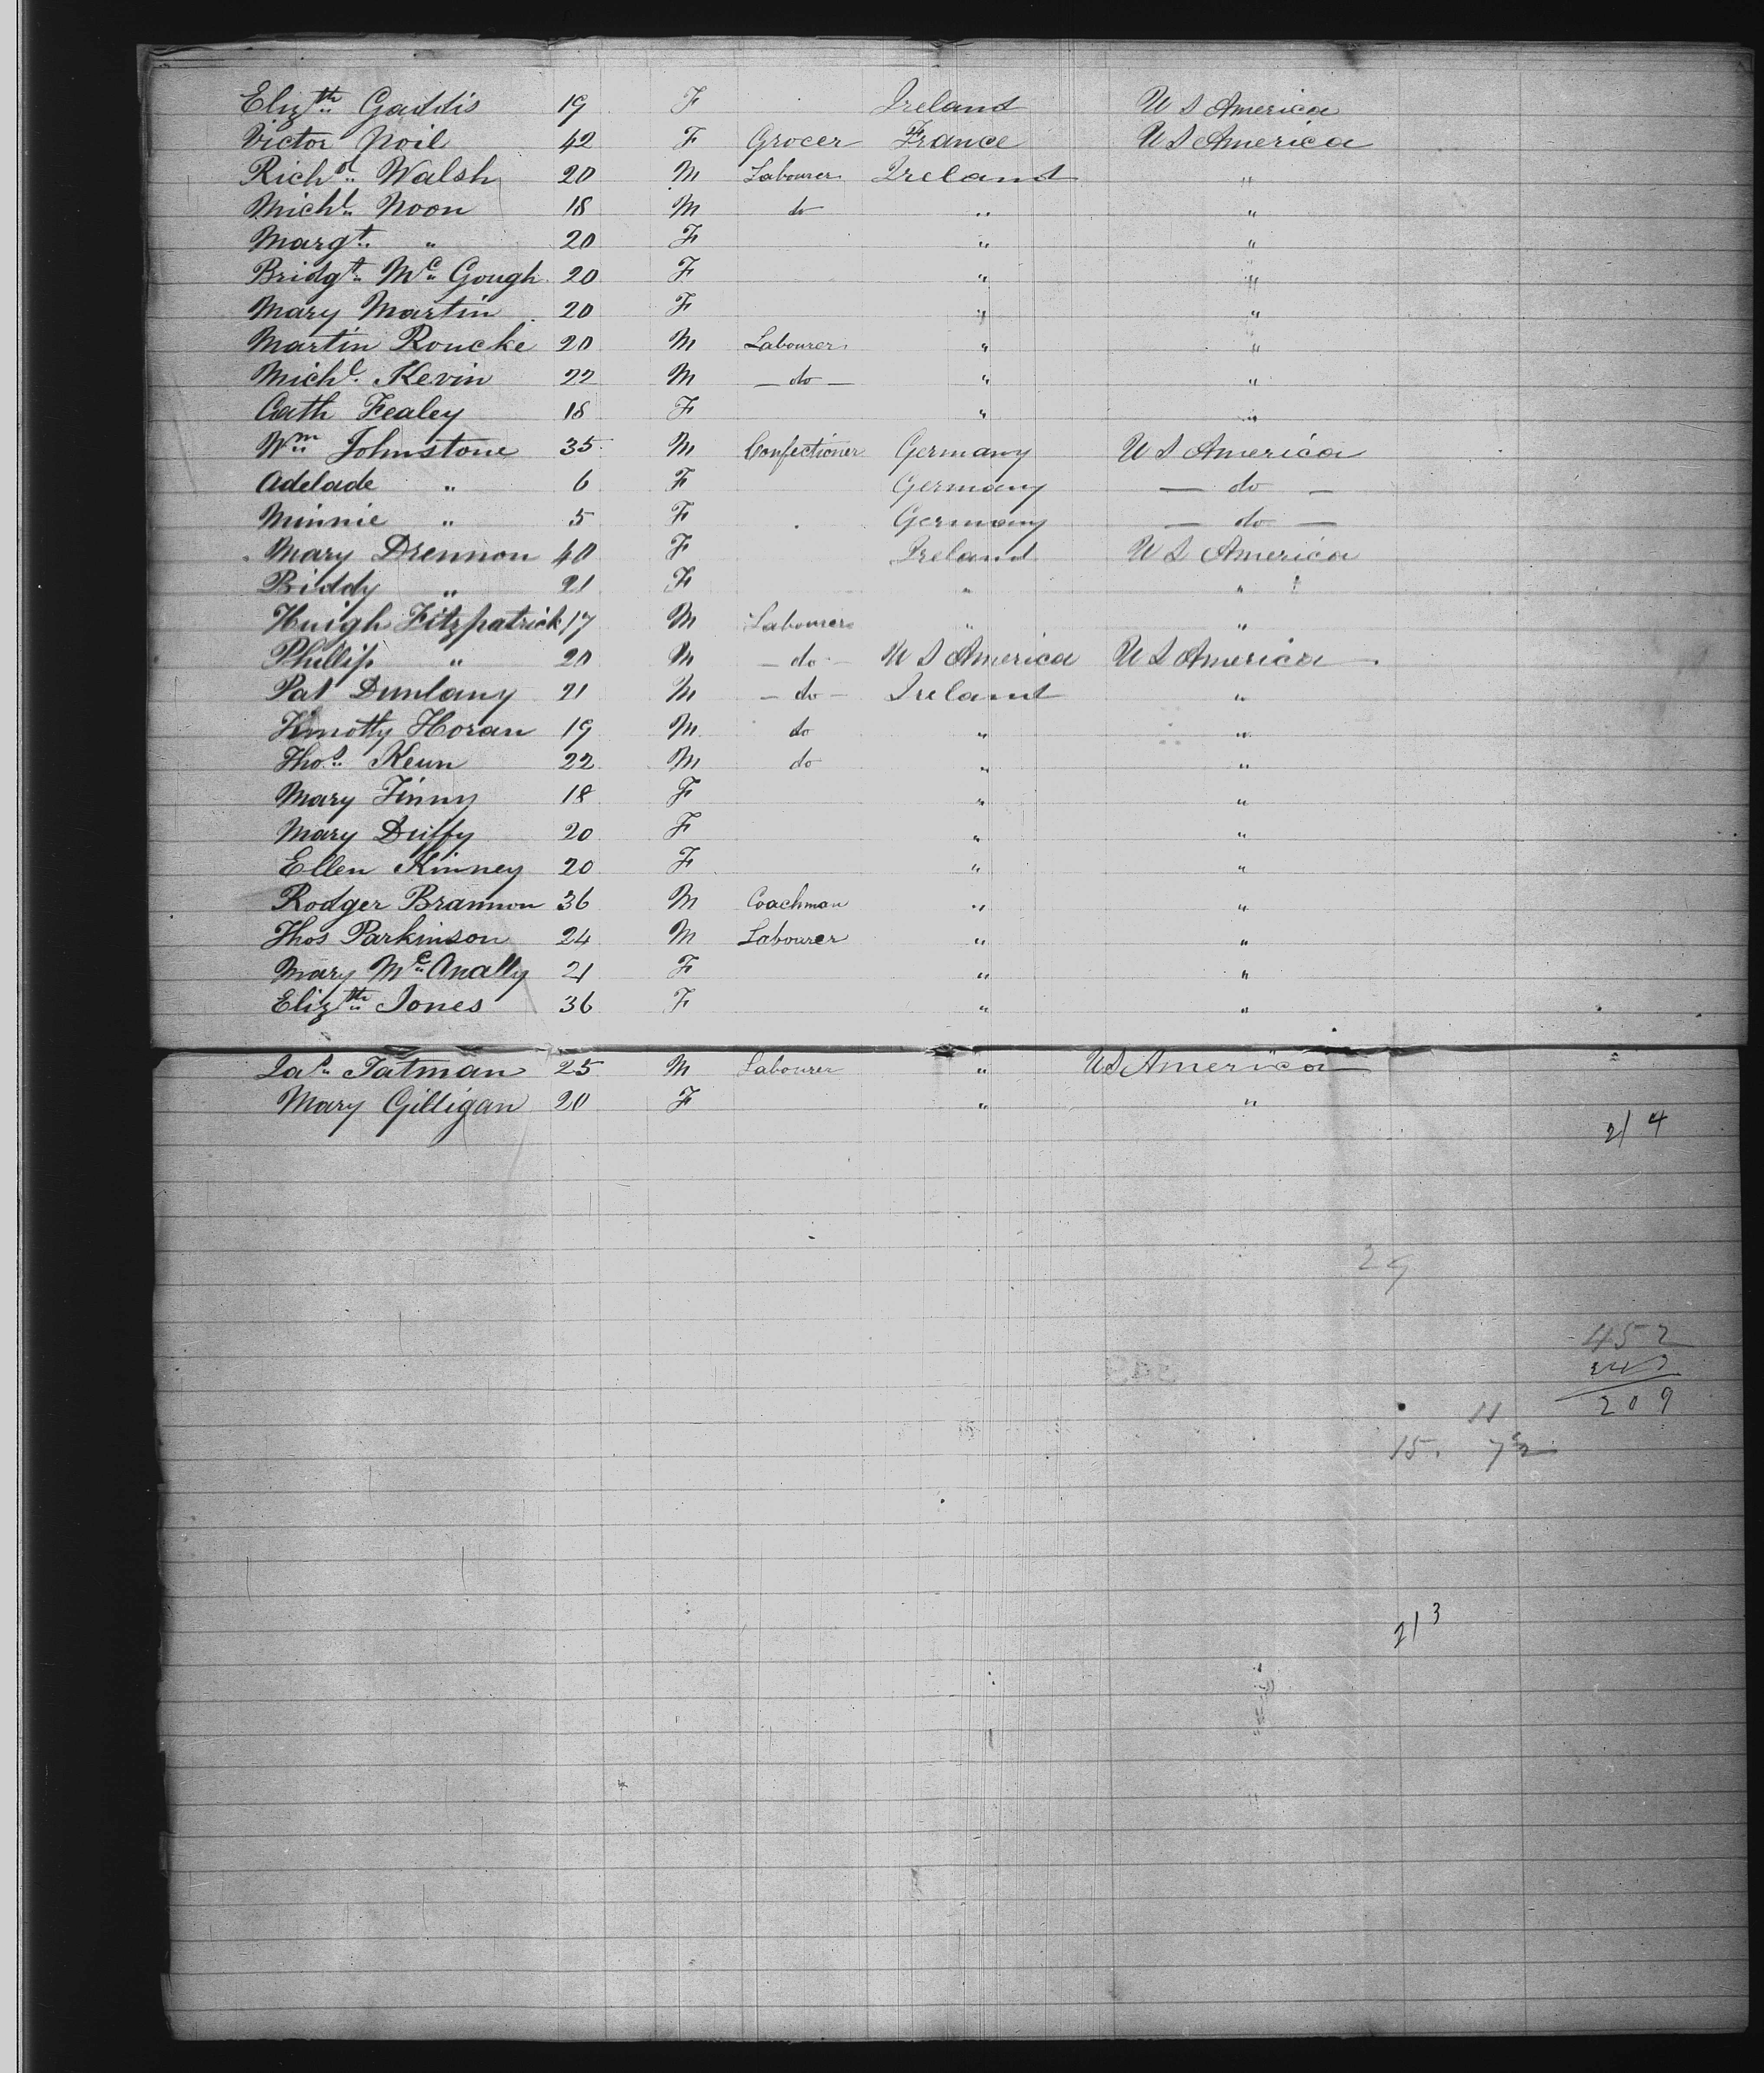 Elizth Gaddis 19 F Ireland U S America
Victor Noil 42 F Grocer France U S America
Richd Walsh 20 M Labourer Ireland "
Michl Noon 18 M do " "
Margt " 20 F " "
Bridgt Mc Gough 20 F " "
Mary Martin 20 F " "
Martin Roucke 20 M Labourer " "
Michl Kevin 22 M — do — " "
Cath Fealey 18 F " "
Wm Johnstone 35 M Confectioner Germany U S America
Adelade " 6 F Germany — do —
Minnie " 5 F Germany — do —
Mary Drennon 40 F Ireland U S America
Biddy " 21 F " "
Huigh Fitzpatrick 17 M Labourer " "
Phillip " 20 M — do — U S America U S America
Pat Dunlany 21 M — do — Ireland "
Timothy Horan 19 M do " "
Thos Keun 22 M do " "
Mary Finny 18 F " "
Mary Duffy 20 F " "
Ellen Kinney 20 F " "
Rodger Brannon 36 M Coachman " "
Thos Parkinson 24 M Labourer " "
Mary Mc Anally 21 F " "
Elizth Jones 36 F " "
Jas Tatman 25 M Labourer " U S America
Mary Gilligan 20 F " "
2/ 4
29
452
243
209
11
15. 7
2/3